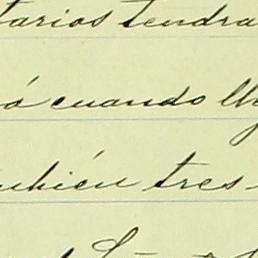 tarios tendra
ó cuando lle
mbién tres